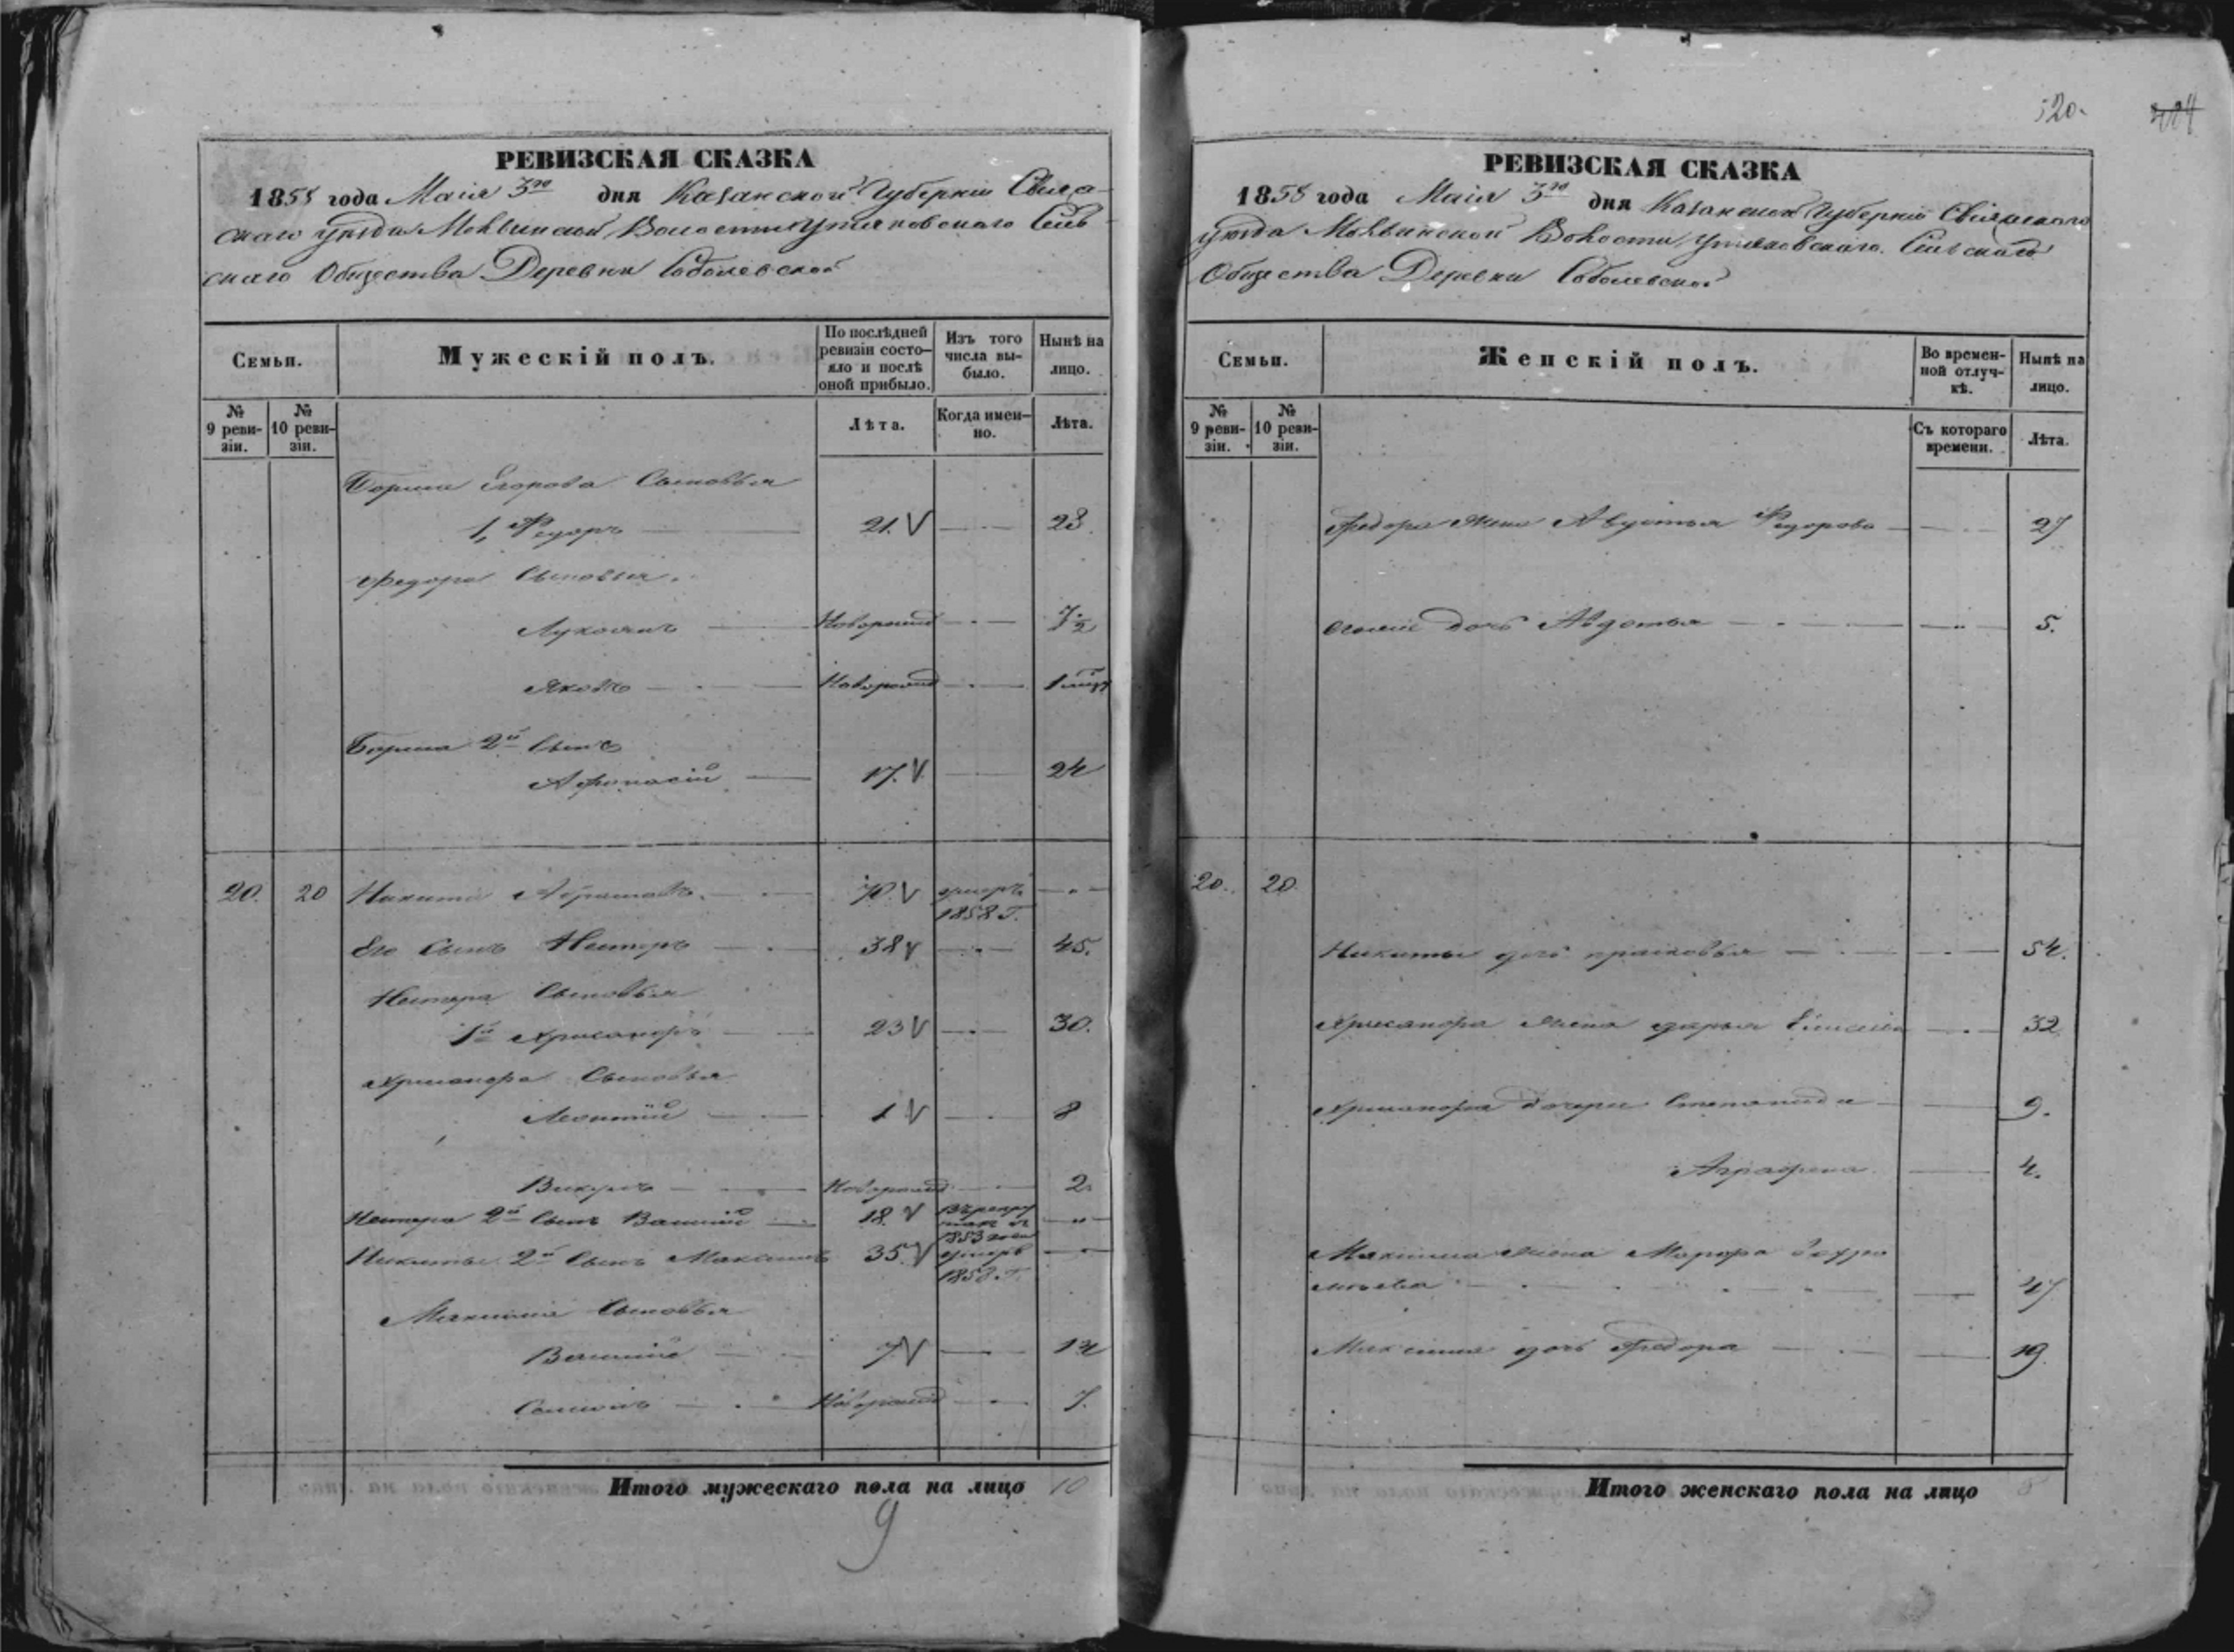 520.
РЕВИЗСКАЯ СКАЗКА
1858 года Маія 3го дня Казанской Губерніи Свіяж-
скаго уезда Молвинской Волости Утяковского Сель-
скаго Общества Деревни Соболевской
Семьи.
Мужескій полъ.
По послѣдней ревизіи состо-
яло и послѣ оной прибыло.
Изъ того числа вы-
было.
Нынѣ на лицо.
№ 9 реви-
зіи.
№ 10 реви-
зіи.
Лѣта.
Когда имен-
но.
Лѣта.
Бориса Егорова Сыновья
1, Федоръ 21. 28
Федора Сыновья
Лукоянъ Новорожд 7½
Яковъ Новорожд 1
Бориса 2й Сынъ
Афонасій 17. 24
20. 20 Никита Абрамовъ. 70. умеръ 1858 г.
Его Сынъ Нестеръ 38 45.
Нестера Сыновья
1й Хрисанфъ 23 30.
Хрисанфа Сыновья
Леонтій 1 8
Викулъ Новорожд 2.
Нестера 2й Сынъ Василий 18. 1853
Никиты 2й Сынъ Максимъ 35. умеръ 1858. г.
Максима Сыновья
Василий 7 14
Самсонъ Новорожд 7.
Итого мужескаго пола на лицо 10
9
РЕВИЗСКАЯ СКАЗКА
1858 года Маія 3го дня Казанской Губерніи Свіяжскаго
уезда Молвинской Волости Утяковскаго Сельскаго
Общества Деревни Соболевской
Семьи.
Женскій полъ.
Во времен-
ной отлуч-
кѣ.
Нынѣ на лицо.
№ 9 реви-
зіи.
№ 10 реви-
зіи.
Съ котораго времени.
Лѣта.
Федора жена Авдотья Федорова 27
дочь Авдотья 5.
20. 20.
Никиты дочь прасковья 54.
Хрисанфа жена дарья Елисеева 32
Хрисанфа дочери Степанида 9.
Аграфена 4.
Максима жена Марфа
47
Максима дочь Федора 19.
Итого женскаго пола на лицо 8